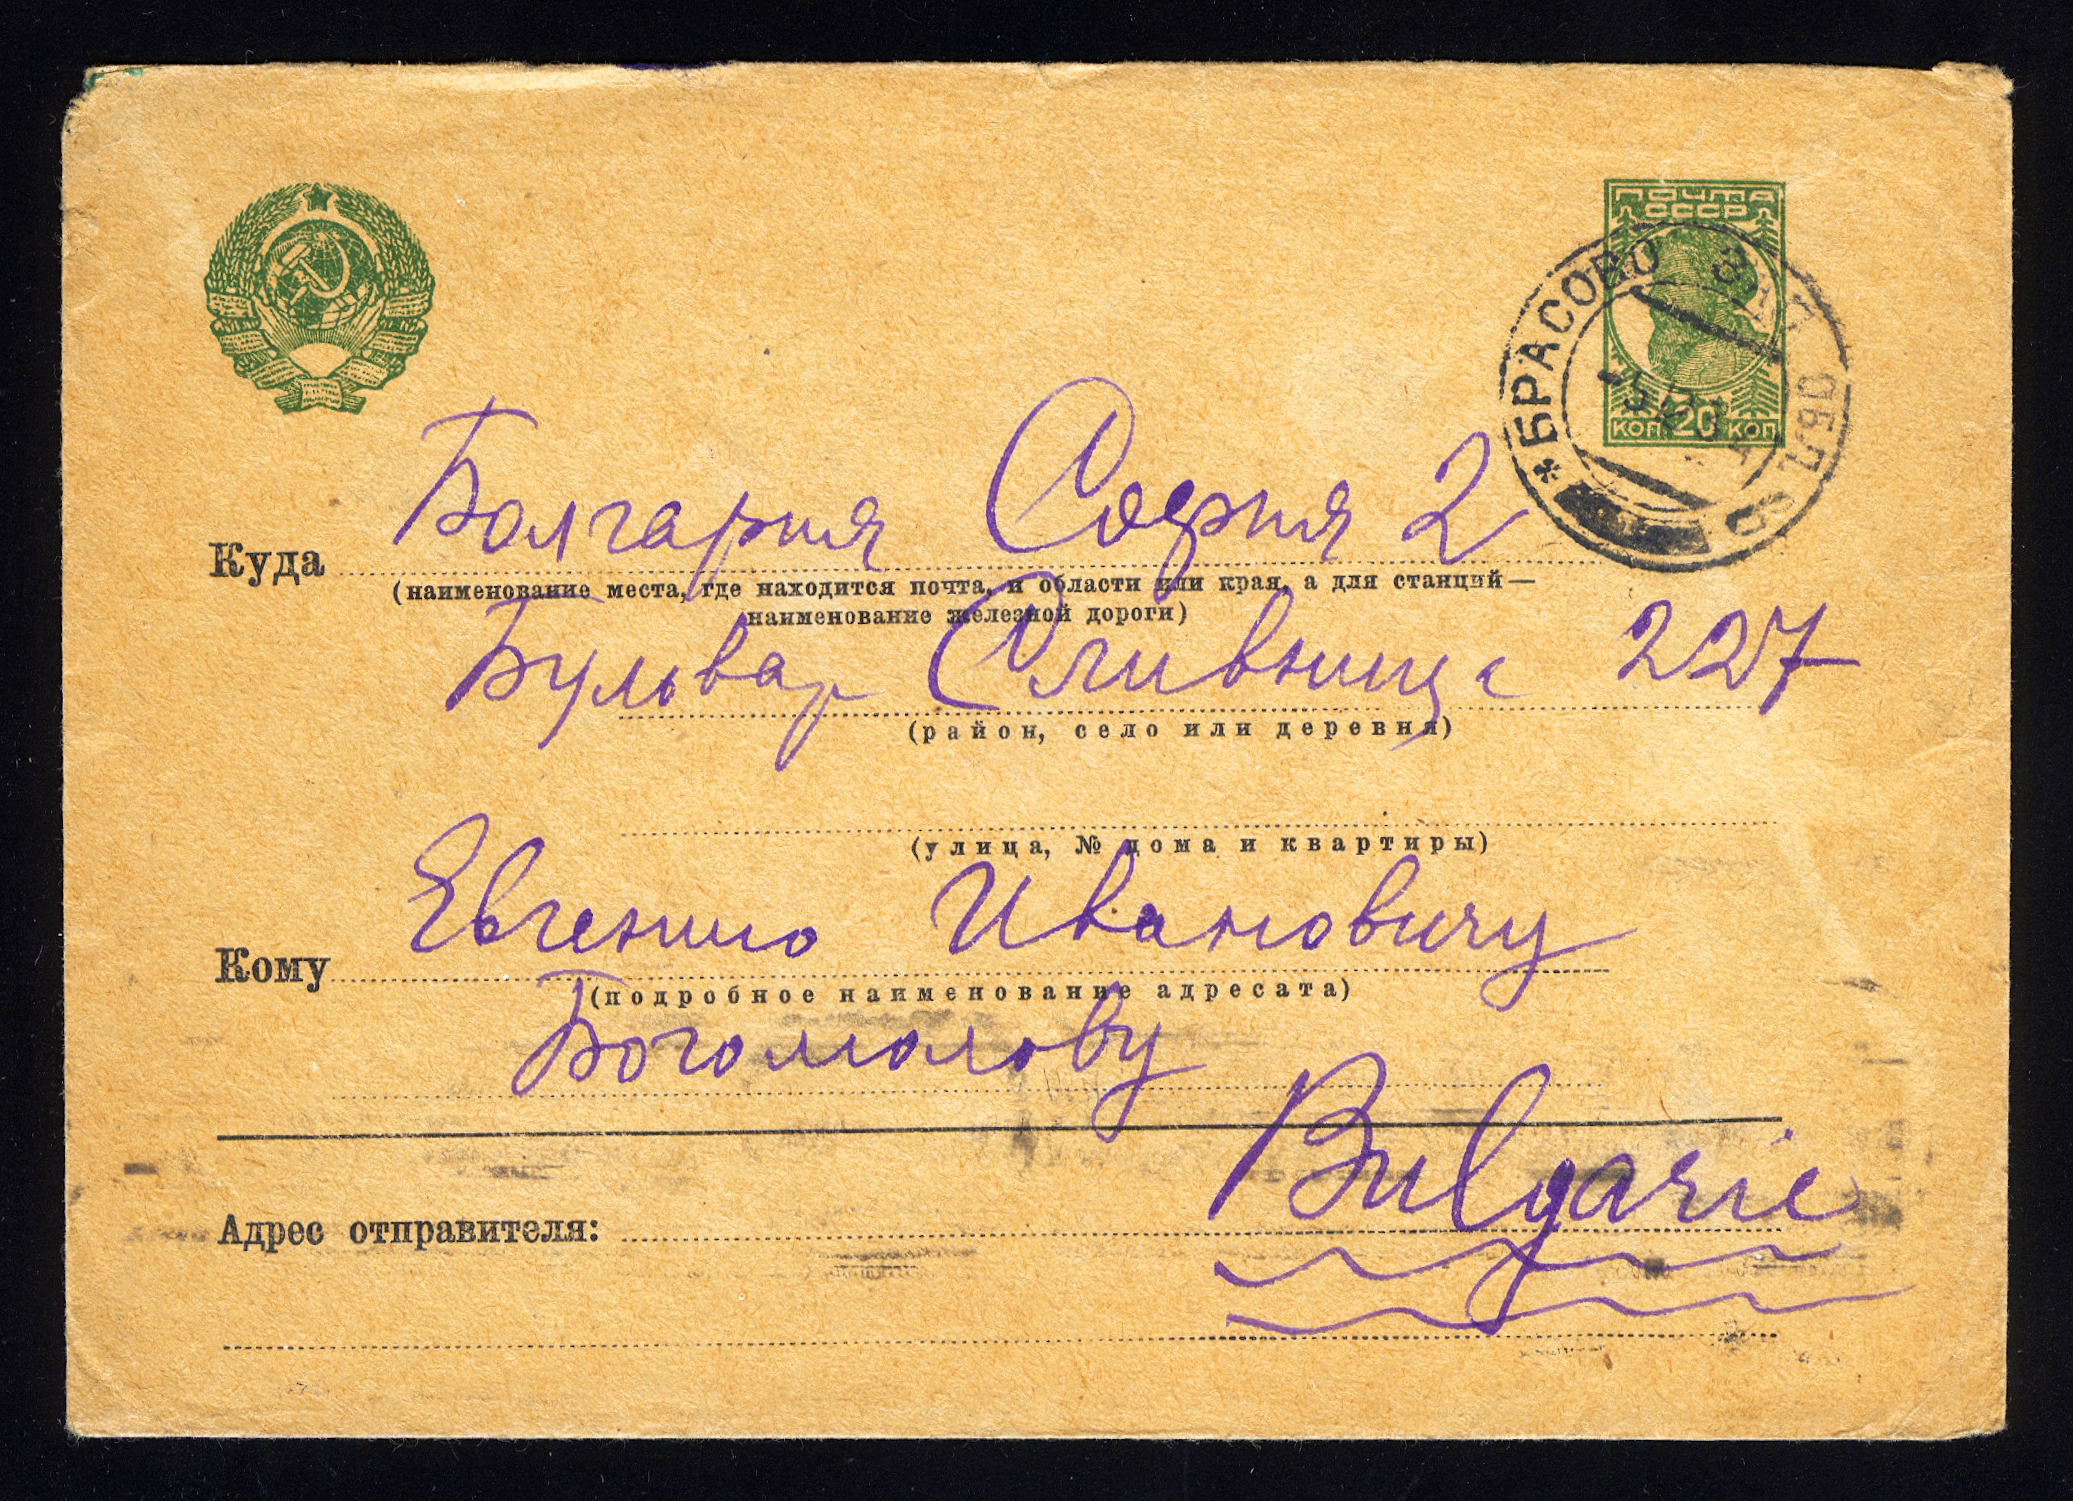 ПОЧТА
СССР
КОП 20 КОП
* БРАСОВО ЗАП. ОБЛ.
Болгария София 2
Куда
(наименование места, где находится почта, и области или края, а для станций—
наименование железной дороги)
Бульвар Сливница 227
(район, село или деревня)
(улица, № дома и квартиры)
Евгению Ивановичу
Кому
(подробное наименование адресата)
Богомолову
Bulgarie
Адрес отправителя: